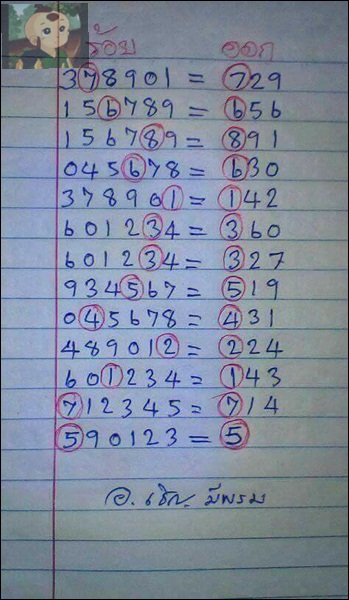 ร้อย ออก
378901 = 729
156789 = 656
156789 = 891
045678 = 630
378901 = 142
601234 = 360
601234 = 327
934567 = 519
045678 = 431
489012 = 224
601234 = 143
712345 = 714
590123 = 5
อ. เชิญ มีพรม